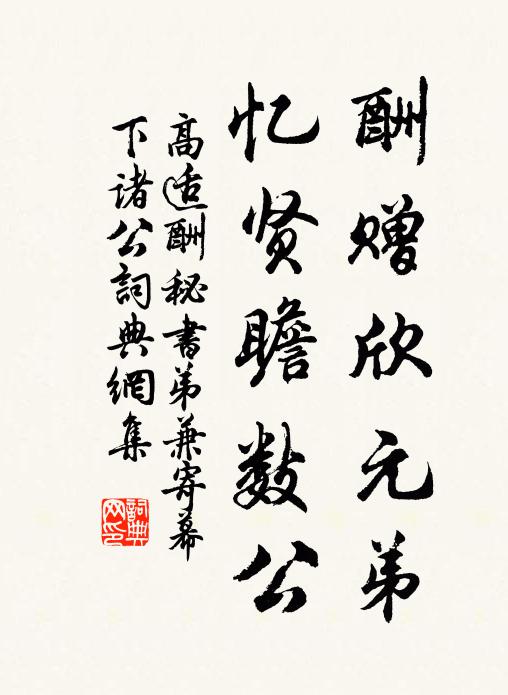 酬赠欣元弟
忆贤瞻数公
高适酬秘书弟兼寄幕
下诸公詞典網集
詞典
网印